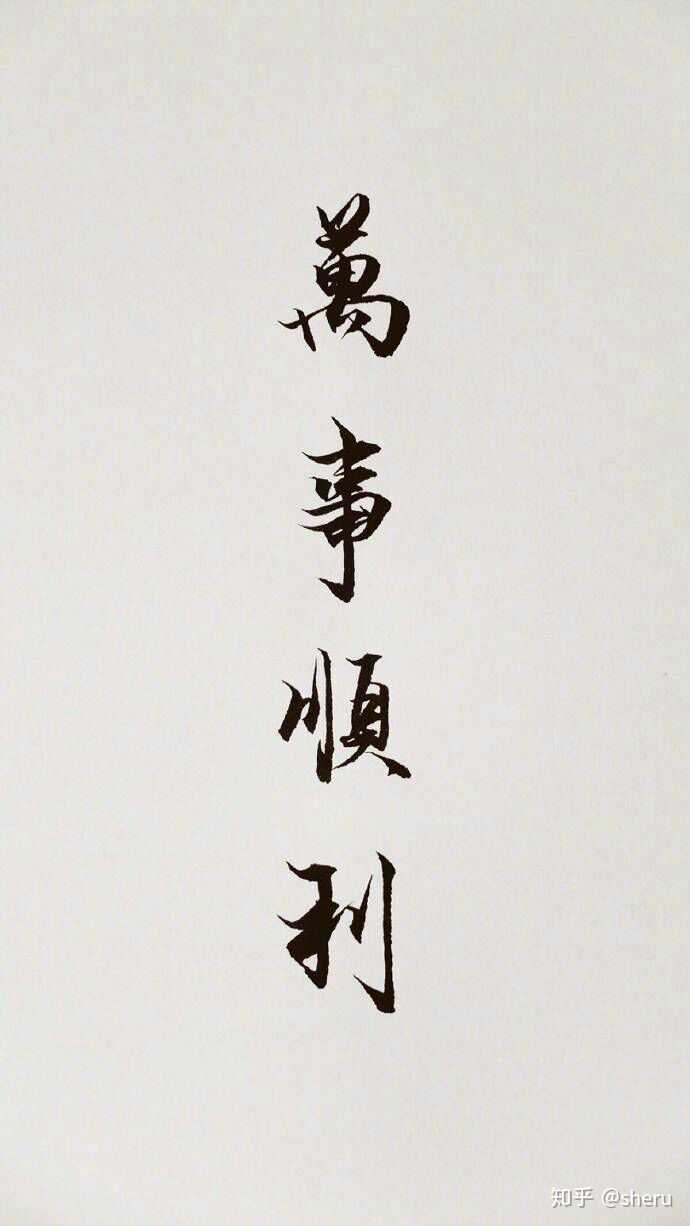 萬事順利
知乎 @sheru